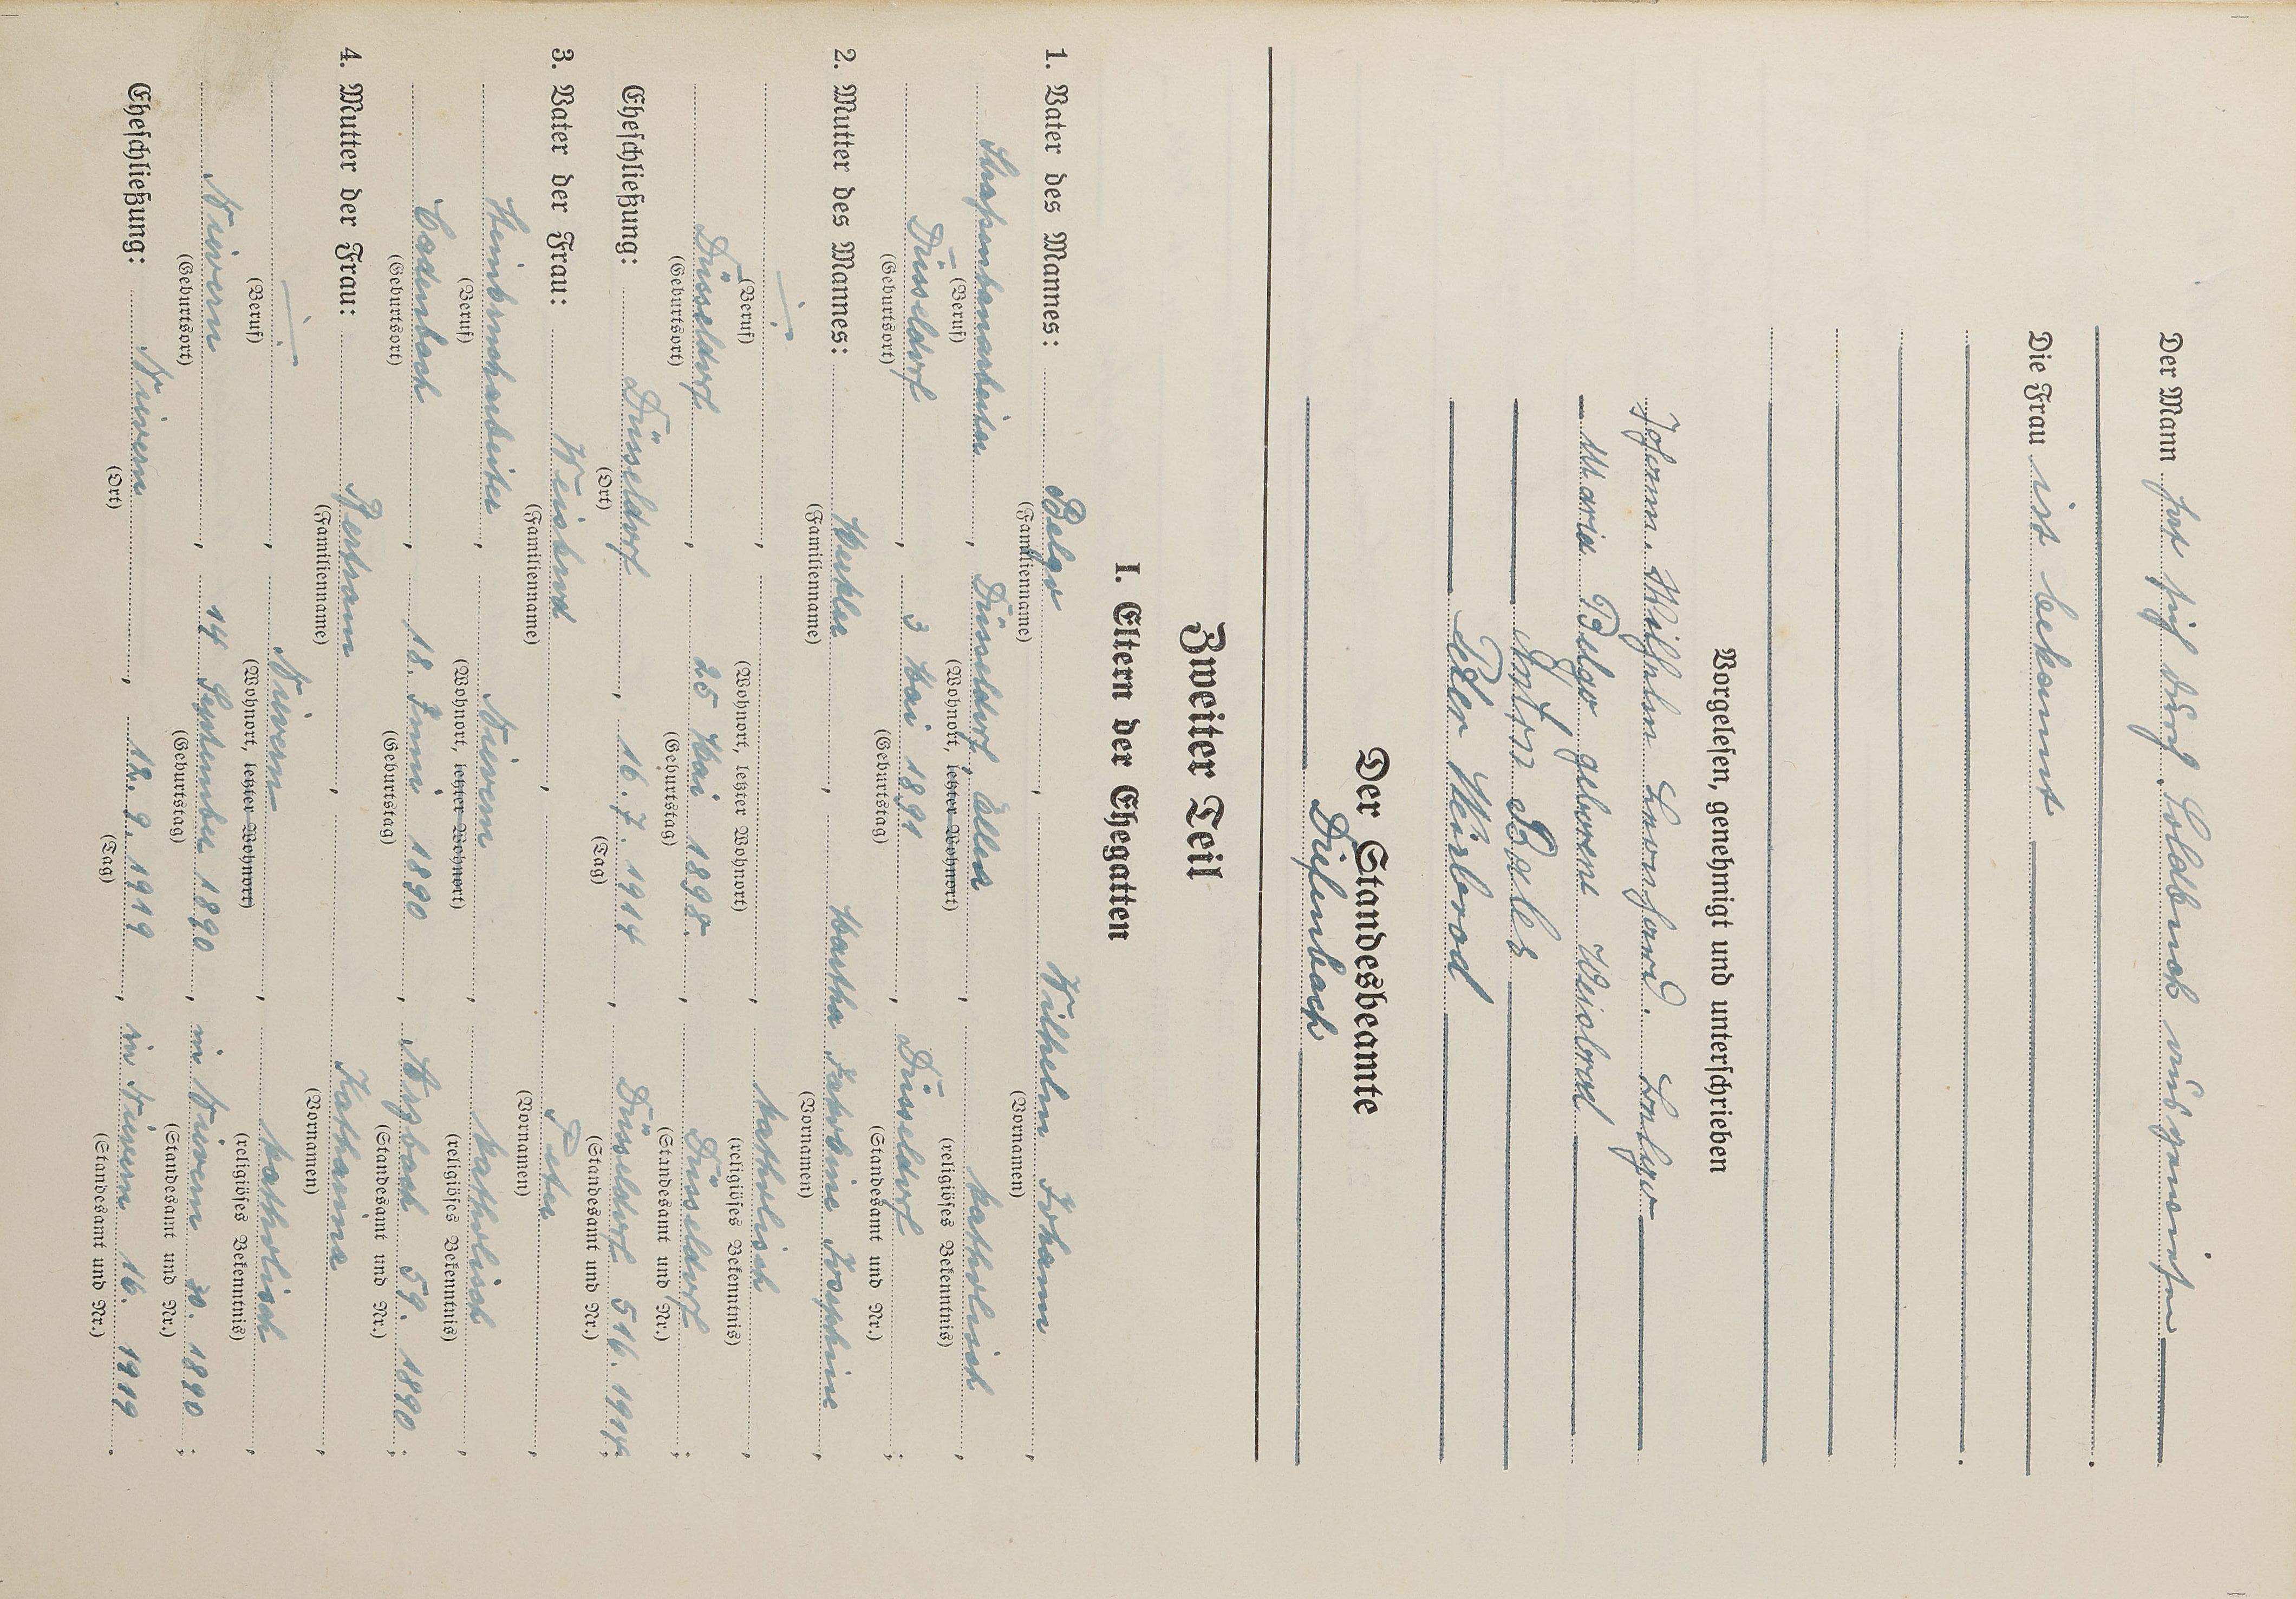 Der Mann hat sich durch Soldbuch ausgewiesen
Die Frau ist bekannt
Vorgelesen, genehmigt und unterschrieben
Johann Wilhelm Leonhard
Maria Belgo geborene Weisbrod
Anton
Peter Weisbrod
Der Standesbeamte
Zweiter Teil
I. Eltern der Ehegatten
1. Vater des Mannes: Belgo, Wilhelm Johann,
(Familienname) (Vornamen)
Strassenbauarbeiter, Düsseldorf, Eller, katholisch,
(Beruf) (Wohnort, letzter Wohnort) (religiöses Bekenntnis)
Düsseldorf, 3 Mai 1891, Düsseldorf;
(Geburtsort) (Geburtstag) (Standesamt und Nr.)
2. Mutter des Mannes: , Martha Jakobine Josephine,
(Familienname) (Vornamen)
, , katholisch,
(Beruf) (Wohnort, letzter Wohnort) (religiöses Bekenntnis)
Düsseldorf, 25 Mai 1898. Düsseldorf;
(Geburtsort) (Geburtstag) (Standesamt und Nr.)
Eheschließung: Düsseldorf, 16.7.1914, Düsseldorf 516. 1914;
(Ort) (Tag) (Standesamt und Nr.)
3. Vater der Frau: Weisbrod, Peter,
(Familienname) (Vornamen)
Steinbrucharbeiter, Nievern, katholisch,
(Beruf) (Wohnort, letzter Wohnort) (religiöses Bekenntnis)
Cadenbach, 18. Juni 1890, Arzbach 59. 1890;
(Geburtsort) (Geburtstag) (Standesamt und Nr.)
4. Mutter der Frau: Bertram, Katharina,
(Familienname) (Vornamen)
, Nievern, katholisch,
(Beruf) (Wohnort, letzter Wohnort) (religiöses Bekenntnis)
Nievern, 14 September 1890, in Nievern 30. 1890;
(Geburtsort) (Geburtstag) (Standesamt und Nr.)
Eheschließung: Nievern, 12.9.1919, in Nievern 16. 1919.
(Ort) (Tag) (Standesamt und Nr.)